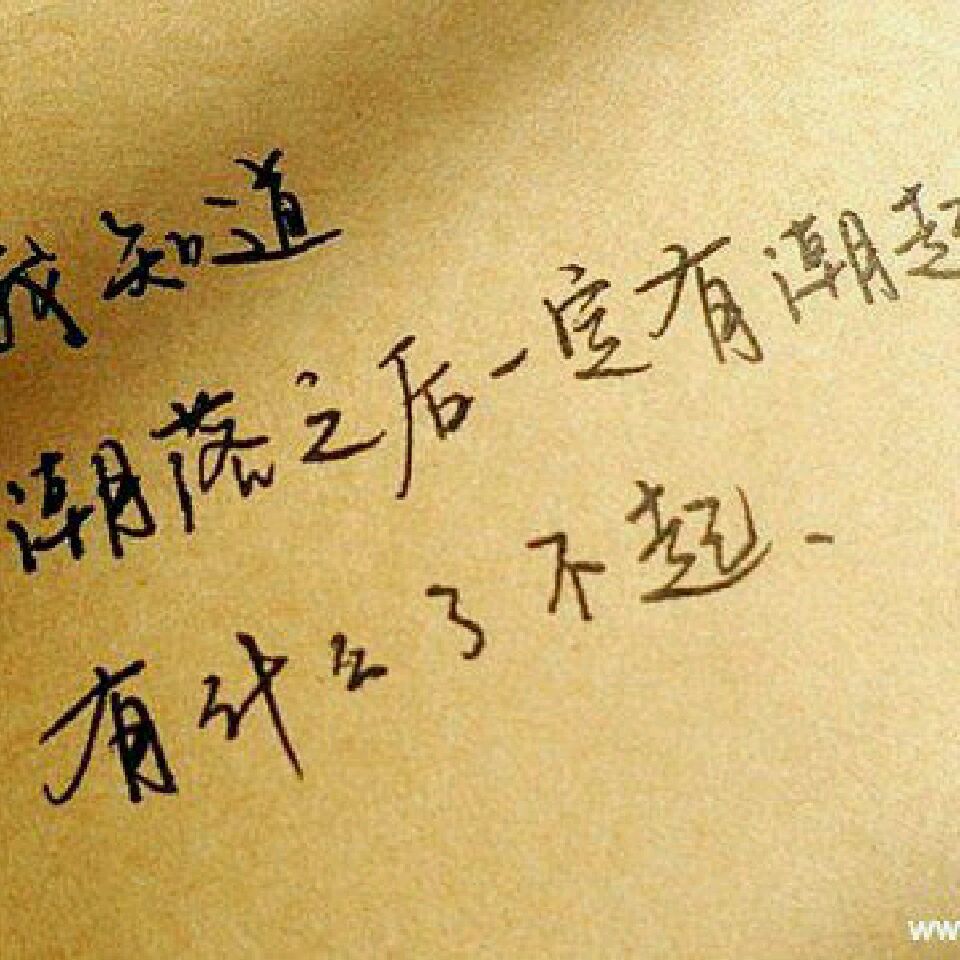 我知道
潮落之后一定有潮起
有什么了不起.
ww